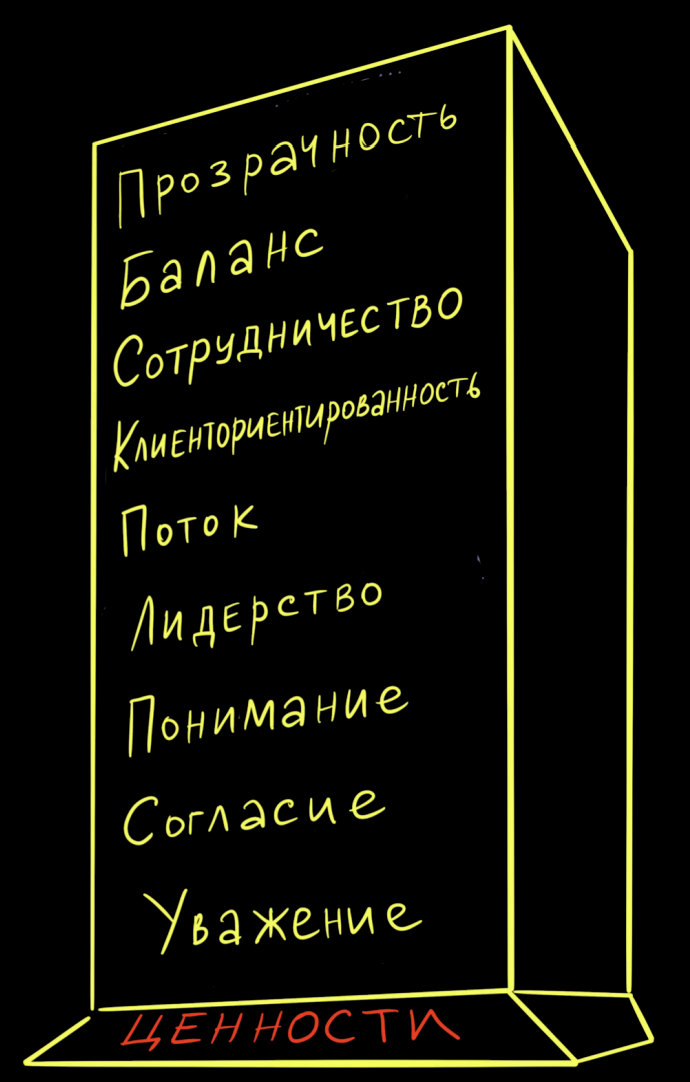 Прозрачность
Баланс
Сотрудничество
Клиенториентированность
Поток
Лидерство
Понимание
Согласие
Уважение
ЦЕННОСТИ